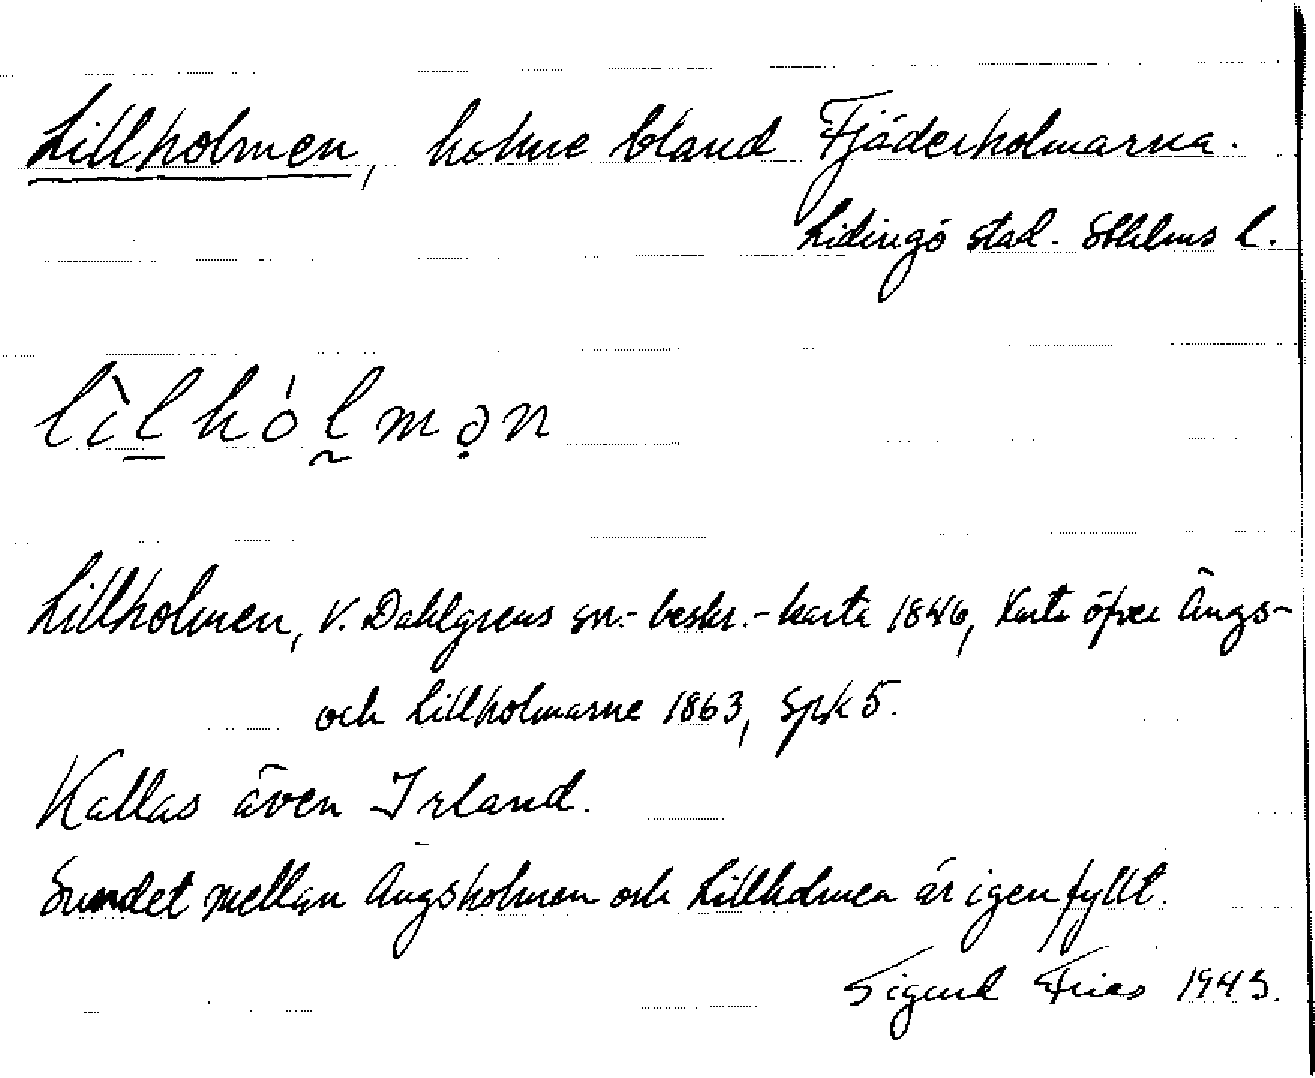 Lillholmen, holme bland Fjäderholmarna.
Lidingö stad. Sthlms l.
lìl̲hól̰mə̣n
Lillholmen, V. Dahlgrens sn.-beskr.-karta 1846, Karta öfver Ängs-
och Lillholmarne 1863, Spk 5.
Kallas även Irland.
Sundet mellan Ängsholmen och Lillholmen är igenfyllt.
Sigurd Fries 1943.